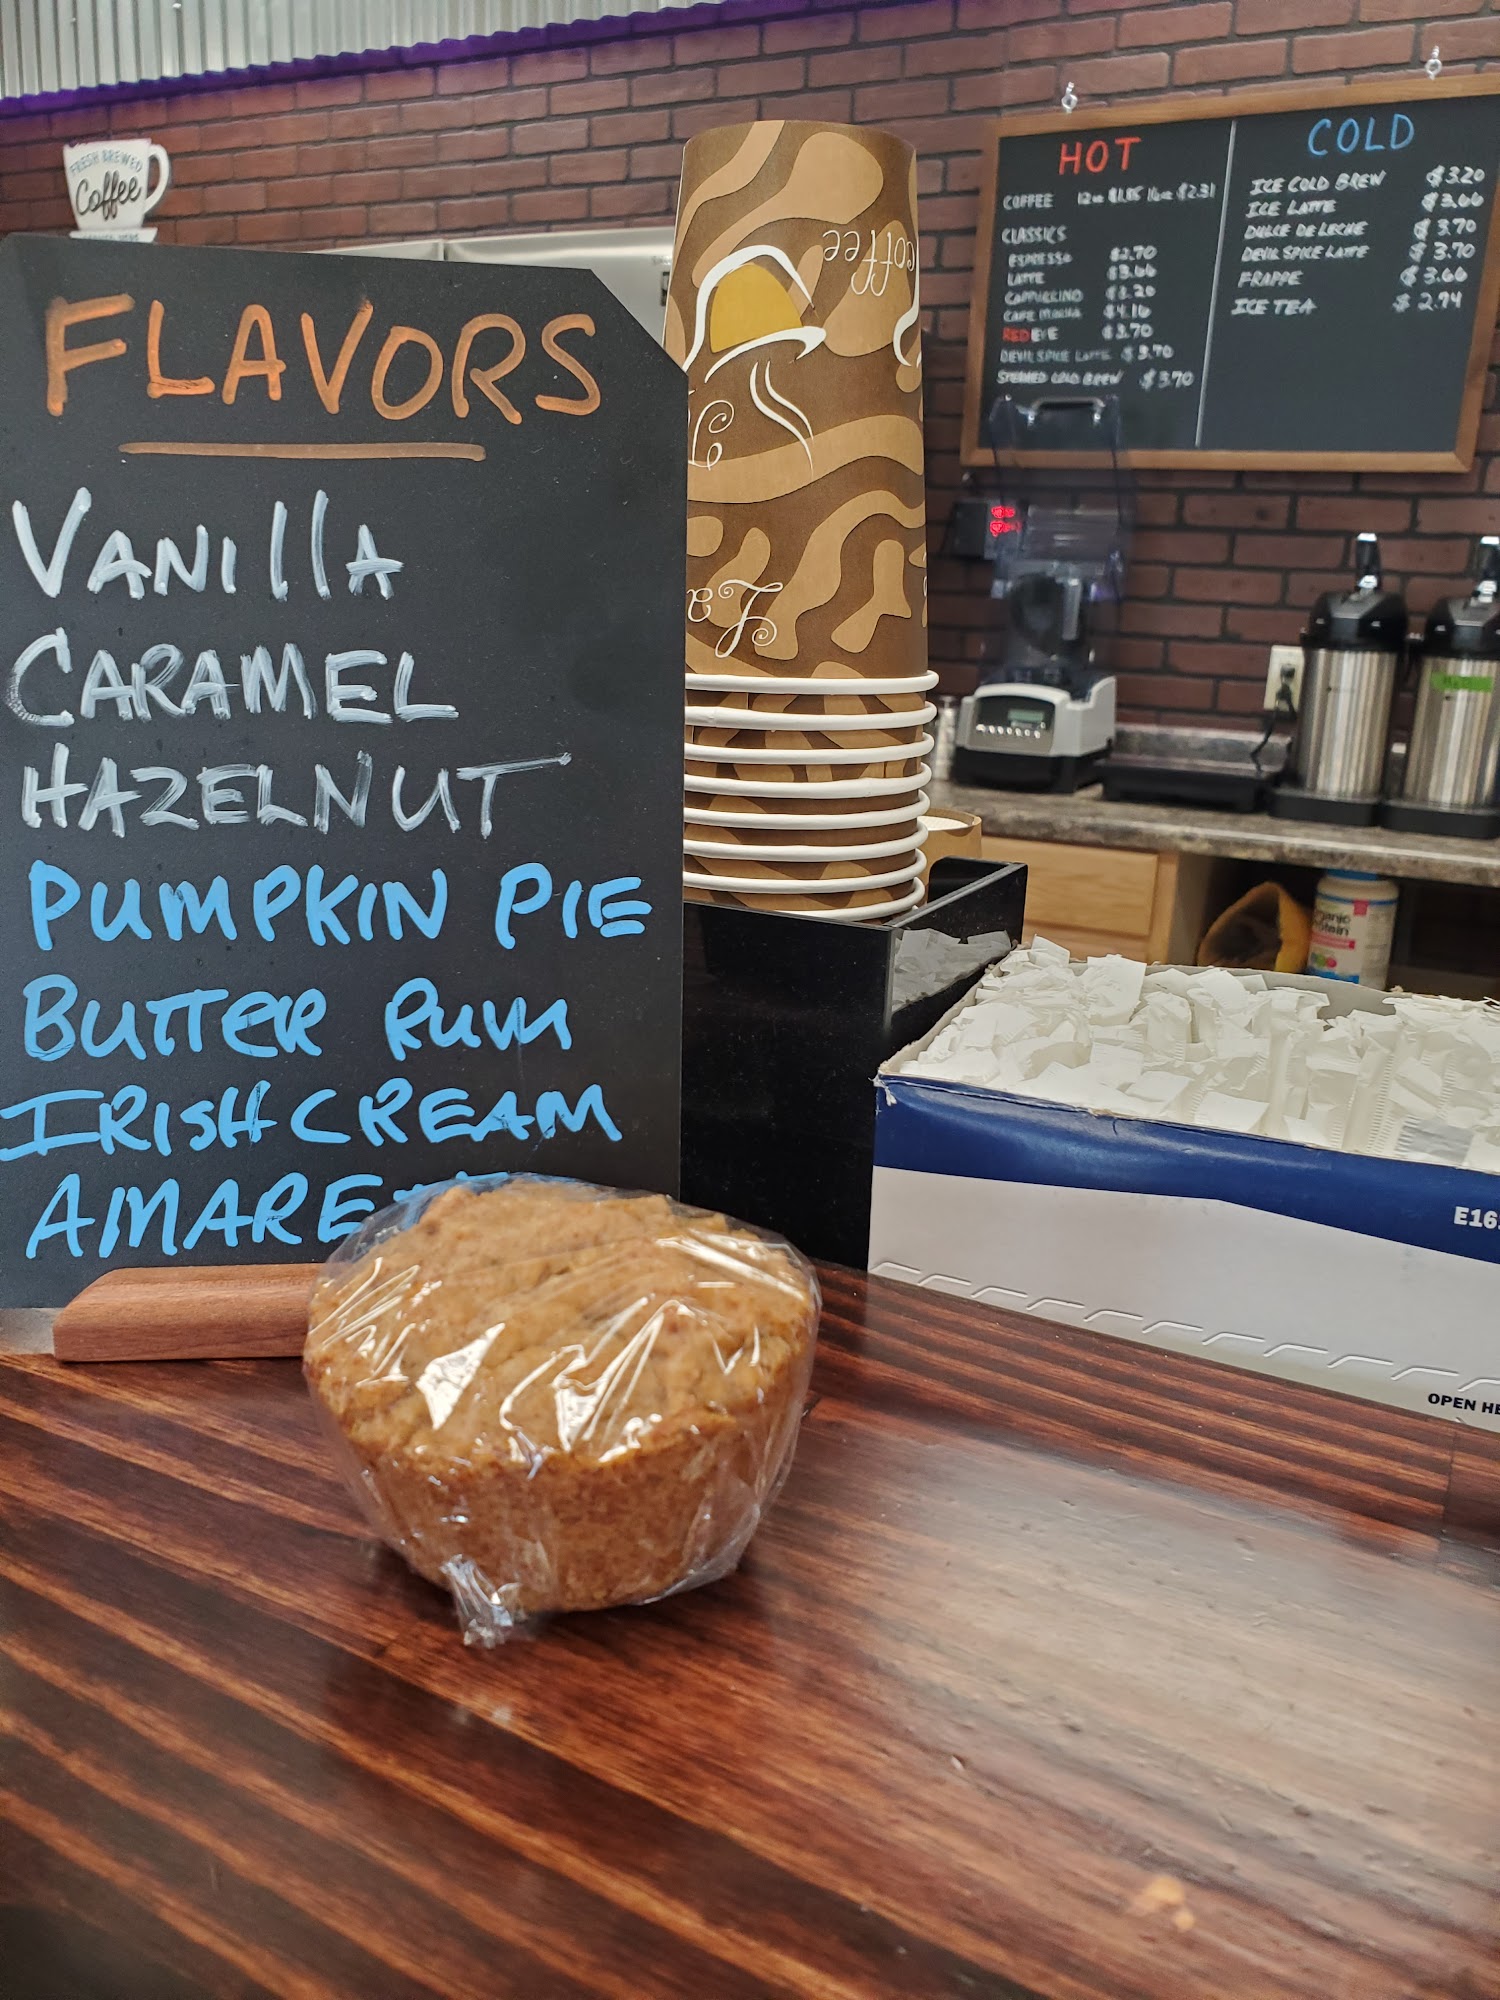 FRESH BREWED
Coffee
FLAVORS
VANILLA
CARAMEL
HAZELNUT
PUMPKIN PIE
BUTTER RUM
IRISH CREAM
AMARE
coffee
coffee
La
HOT
COFFEE 12oz $1.85 16oz $2.31
CLASSICS
ESPRESSO $2.70
LATTE $3.66
CAPPUCCINO $3.20
CAFE MOCHA $4.16
RED EYE $3.70
DEVIL SPICE LATTE $3.70
STEAMED COLD BREW $3.70
COLD
ICE COLD BREW $3.20
ICE LATTE $3.66
DULCE DE LECHE $3.70
DEVIL SPICE LATTE $3.70
FRAPPE $3.66
ICE TEA $2.94
E16
OPEN HE